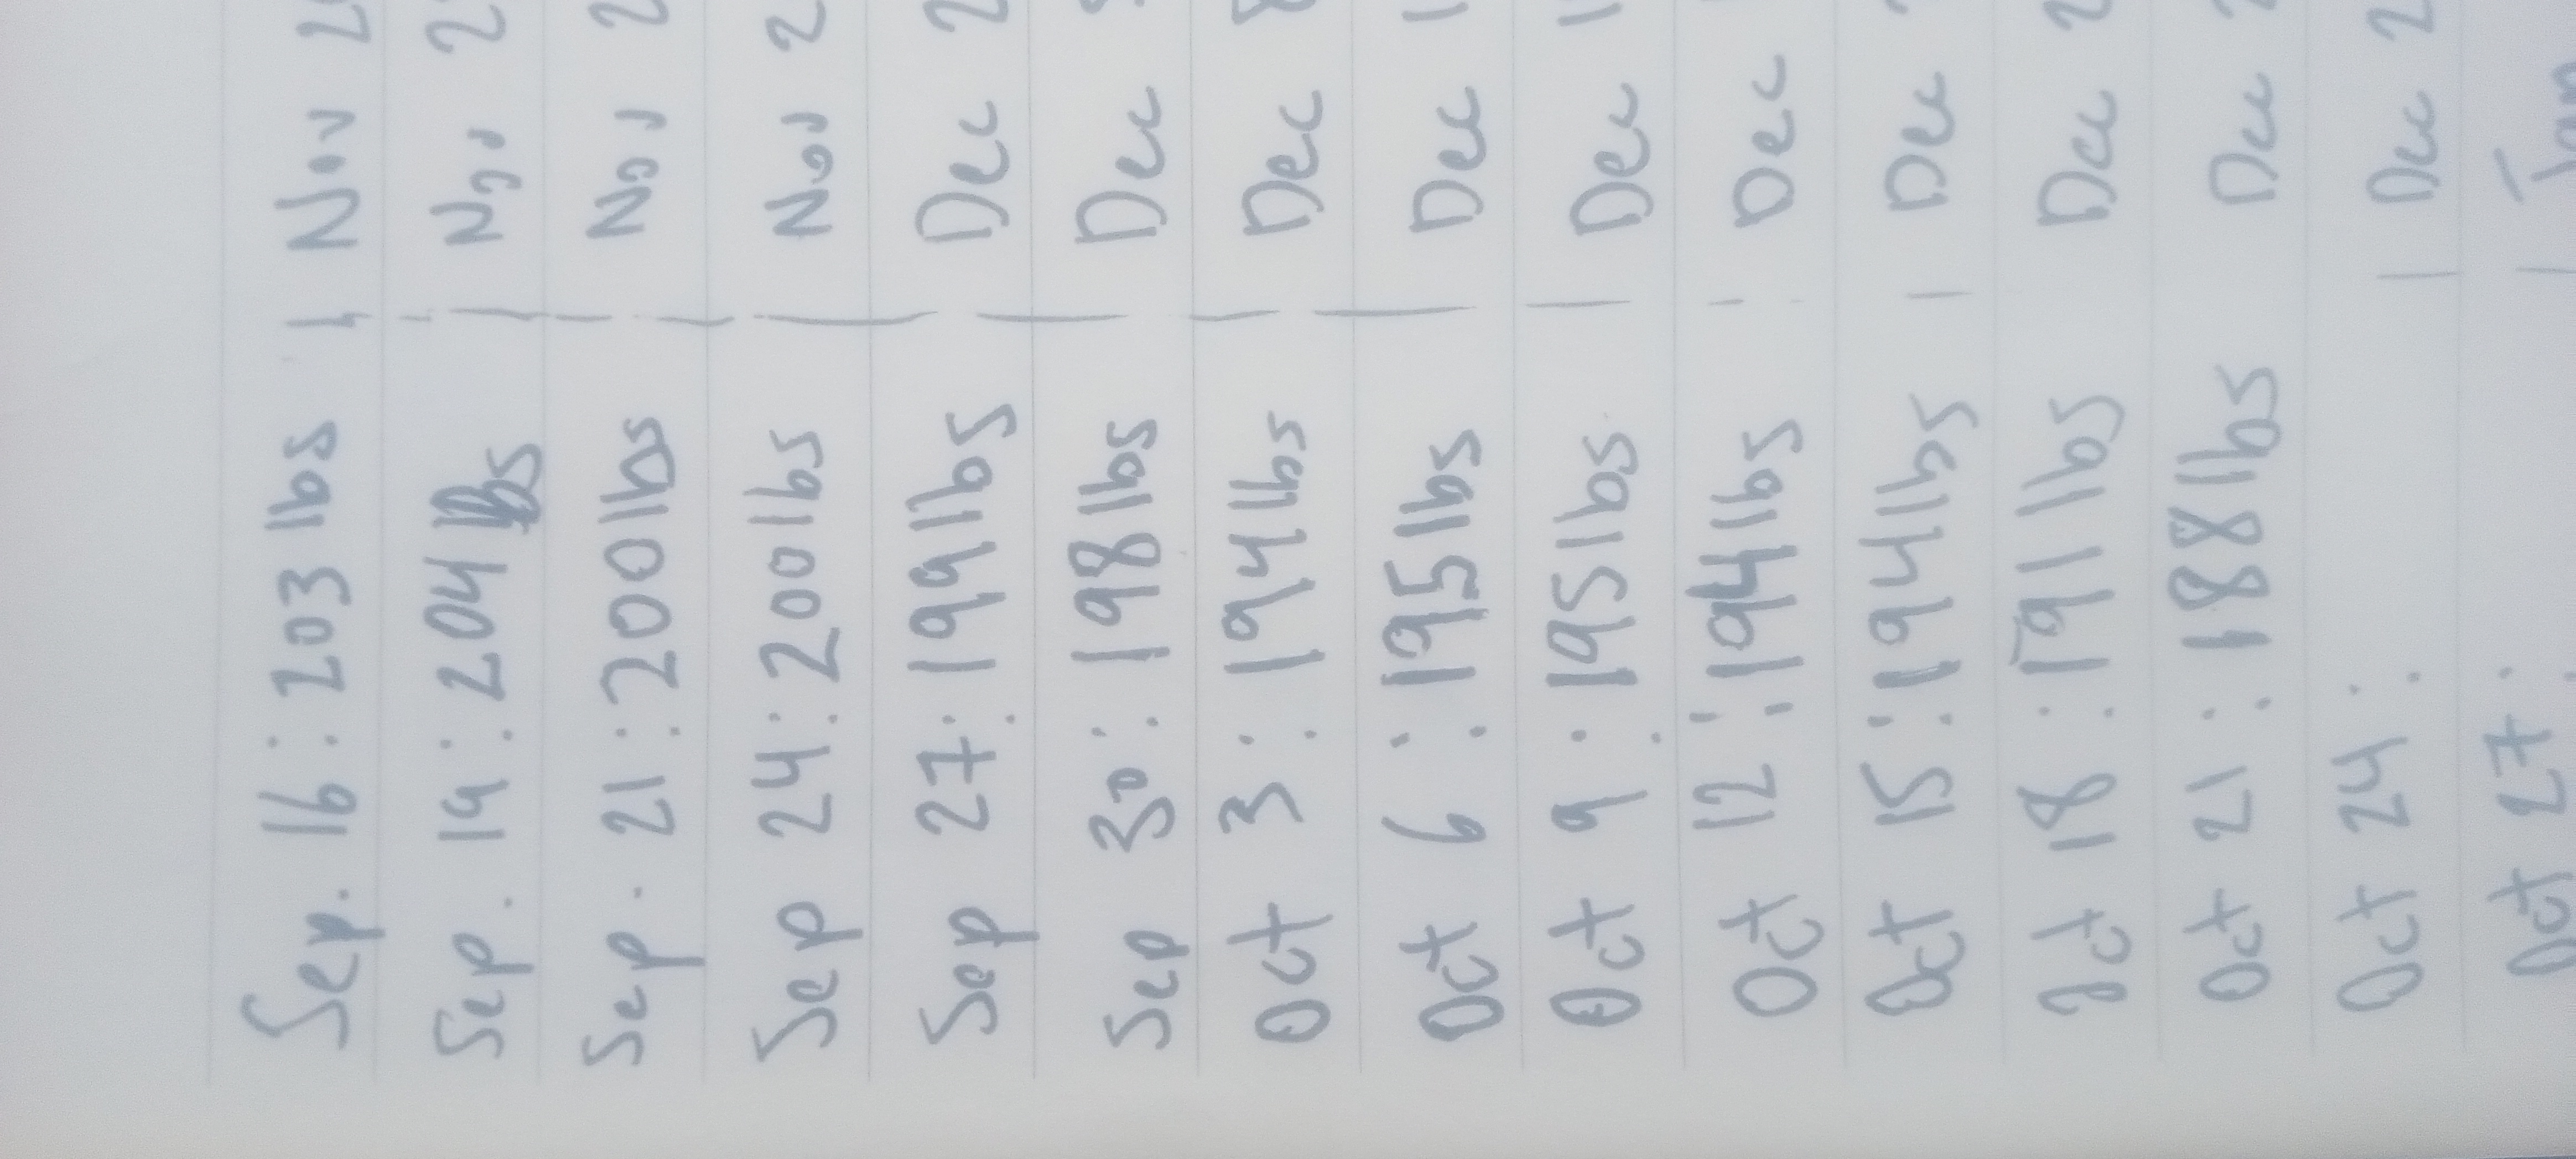 Sep. 16 : 203 lbs | Nov
Sep. 19 : 204 lbs | Nov
Sep. 21 : 200 lbs | Nov
Sep 24 : 200 lbs | Nov
Sep 27 : 199 lbs | Dec
Sep 30 : 198 lbs | Dec
Oct 3 : 194 lbs | Dec
Oct 6 : 195 lbs | Dec
Oct 9 : 195 lbs | Dec
Oct 12 : 194 lbs | Dec
Oct 15 : 194 lbs | Dec
Oct 18 : 191 lbs Dec
Oct 21 : 188 lbs Dec
Oct 24 : | Dec
Oct 27 : | Jan